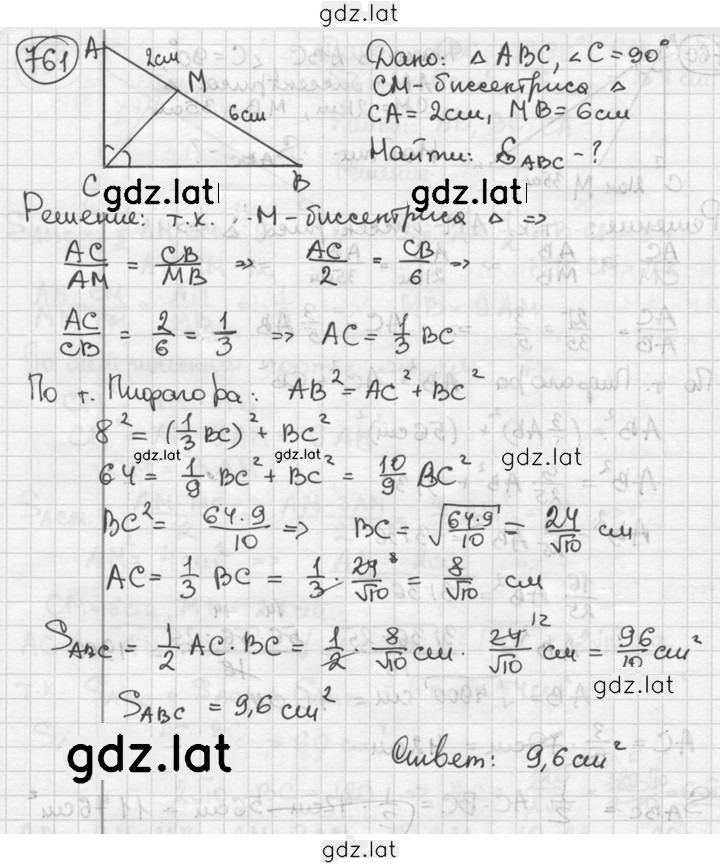 gdz.lat
761
A 2см M 6см C B
Дано: △ ABC, ∠C=90°
CM-биссектриса △
CA=2см, MB=6см
Найти: S_ABC-?
gdz.lat gdz.lat
Решение: т.к. M-биссектриса △ =>
AC/AM = CB/MB => AC/2 = CB/6 =>
AC/CB = 2/6 = 1/3 => AC= 1/3 BC
По т. Пифагора: AB²=AC²+BC²
8²=(1/3 BC)²+BC²
gdz.lat gdz.lat gdz.lat
64= 1/9 BC²+BC²= 10/9 BC²
BC²= 64·9/10 => BC= √(64·9/10) = 24/√10 см
AC= 1/3 BC = 1/3 · 24/√10 8 = 8/√10 см
S_ABC = 1/2 AC·BC= 1/2 · 8/√10 см · 24/√10 12 см = 96/10 см²
gdz.lat
S_ABC = 9,6 см²
gdz.lat
Ответ: 9,6 см²
gdz.lat